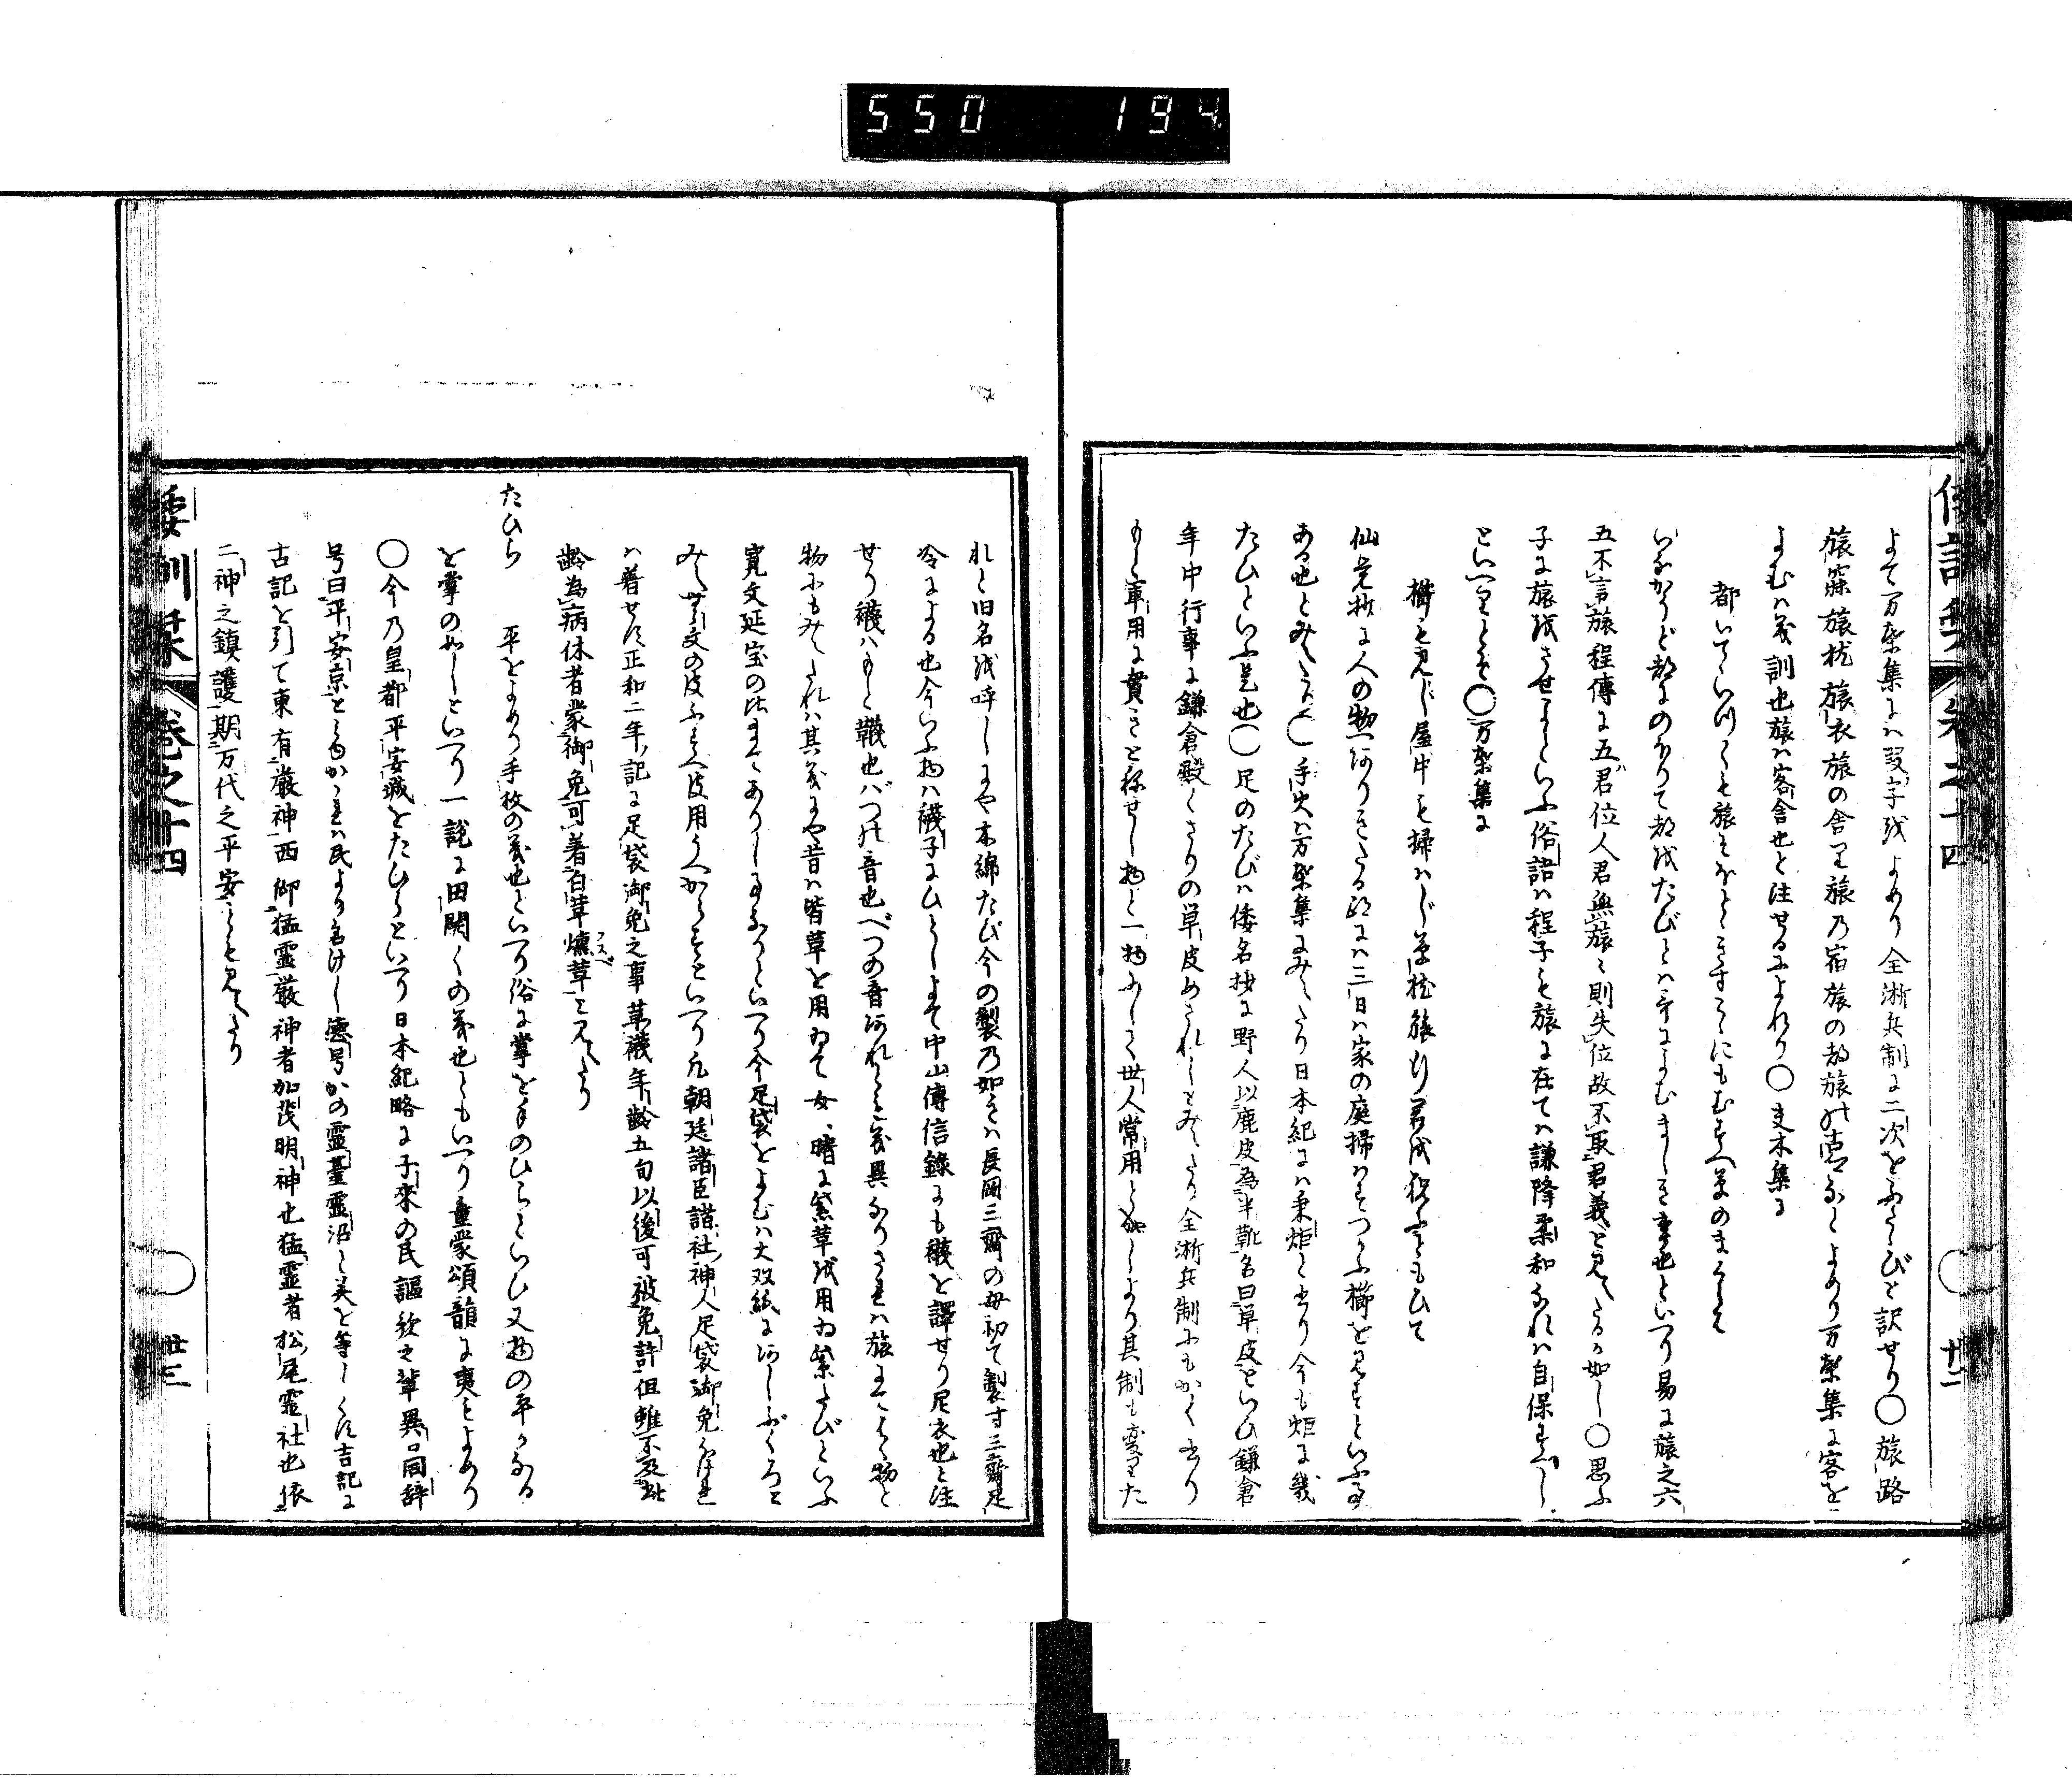 550 194
よて万葉集には叚字をよめり全浙兵制に二次をふたゝびと訳せり〇旅路
旅寐旅枕旅衣旅の舎り旅乃宿旅の都旅のなとよめり万葉集に客を
よむは義訓也旅は客舎也と注せるによれり〇夫木集に
都いてゝいつくも旅をほとゝきすこゝにもむすへ草のまくらを
いなかうど都にのほりて都をたびとは常によむましき事也といへり易に旅之六
五不言旅程傳に五君位人君無旅旅則失位故不取君義と見えたるか如し〇思ふ
子に旅をさせよといふ俗語は程子も旅に在ては謙降柔和なれは自保すへし
といへりとそ〇万葉集に
櫛も見じ屋中も掃はじ草枕旅行君を祝ふともひて
仙覚抄に人の物へ行きたる跡には三日は家の庭掃はすつかふ櫛を見すといふ事
ある也とみえたり〇手火は万葉集にみえたり日本紀には秉炬と書り今も炬に幾
たひといふ是也〇足のたびは倭名抄に野人以鹿皮為半靴名曰単皮といひ鎌倉
年中行事に鎌倉殿くさりの単皮めされしとみえたり全浙兵制にもかく書り
もと軍用に貫きと称せし物と一物にして世人常用と成しより其制も変りた
倭訓栞 巻之十四 廿二
れと旧名を呼しにや木綿たび今の製乃如きは長岡三齋の母初て製す三齋足
冷による也今いふ物は襪子にひとしよて中山傳信録にも襪を譯せり尼衣也と注
せり襪はもと韈也ばつの音也べつの音あれと義異なりされは旅にはく物と
物にもみえたれは其義にや昔は皆革を用ゐて女は晴に紫革を用ゐ紫たびといふ
寛文延宝の比まてありし事なりといへり今足袋をよむは大双紙にあしぶくろと
みえ世文の皮ふすへ皮用うへからすといへり凡朝廷諸臣諸社神人足袋御免なけれ
は着せす正和二年記に足袋御免之事革襪年齢五旬以後可被免許但雖不及此
齢為病休者蒙御免可着白革燻革と見えたり
フスベ
たひら 平をよめり手枚の義也といへり俗に掌を手のひらといひ又物の平らなる
を掌のぬしといへり一説に田闢くの義也ともいへり童蒙頌韻に夷もよめり
〇今乃皇都平安城をたひらといへり日本紀略に子来の民謳歌之輩異口同辞
号曰平安京とみゆかゝれは民より名けし徳号かの霊臺霊沼と美を等しくす吉記に
古記を引て東有厳神西仰猛霊厳神者加茂明神也猛霊者松尾霊社也依
二神之鎮護期万代之平安とも見えたり
倭訓栞 巻之十四 廿三